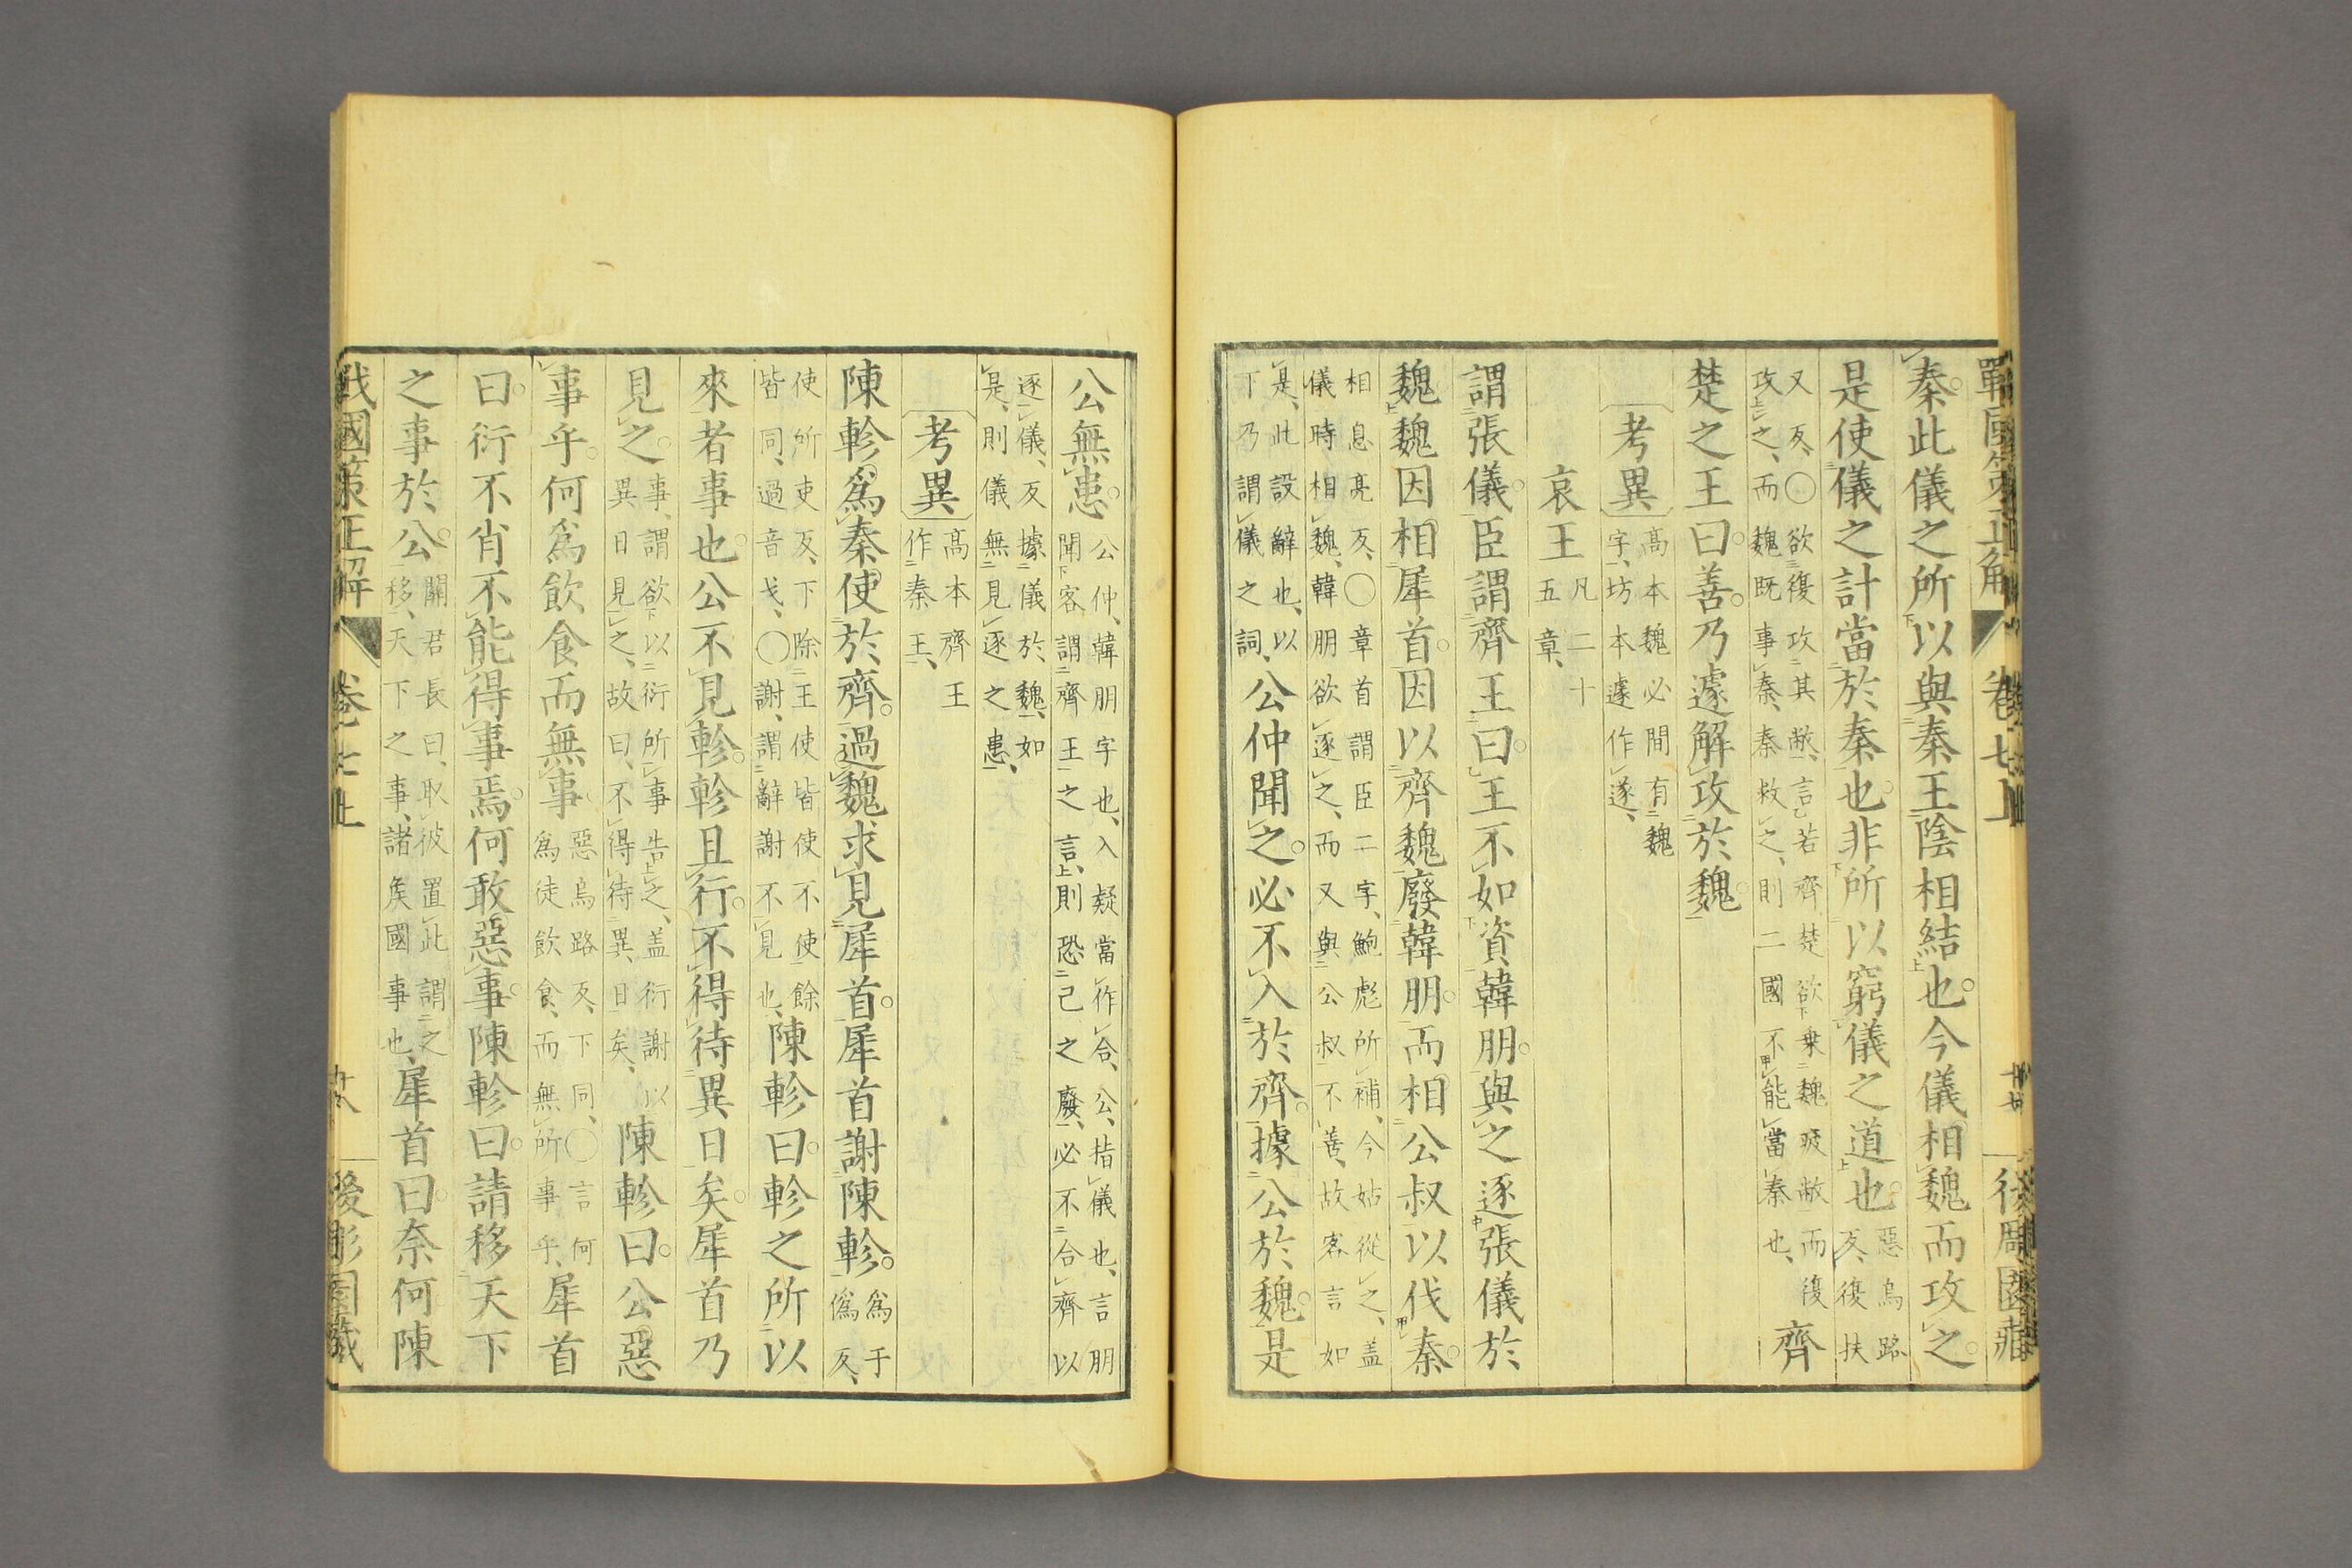 戰國策正解 卷七上 後彫園藏
秦此儀之所以與秦王陰相結也今儀相魏而攻之
是使儀之計當於秦也非所以窮儀之道也
惡烏路
反復扶
又反○欲復攻其敝言若齊楚欲乘魏疲敝而復
攻之而魏既事秦秦救之則二國不能當秦也
齊
楚之王曰善乃遽解攻於魏
考異
高本魏必間有魏
字坊本遽作遂
哀王
凡二十
五章
謂張儀臣謂齊王曰王不如資韓朋與之逐張儀於
魏魏因相犀首因以齊魏廢韓朋而相公叔以伐秦
相息亮反○章首謂臣二字鮑彪所補今姑從之盖
儀時相魏韓朋欲逐之而又與公叔不善故客言如
是此設辭也以
下乃謂儀之詞
公仲聞之必不入於齊據公於魏是
公無患
公仲韓朋字也入疑當作合公指儀也言朋
聞客謂齊王之言則恐己之廢必不合齊以
逐儀反據儀於魏如
是則儀無見逐之患
考異
高本齊王
作秦王
陳軫爲秦使於齊過魏求見犀首犀首謝陳軫
爲于
僞反
使所吏反下除王使皆使不使餘
皆同過音戈○謝謂辭謝不見也
陳軫曰軫之所以
來者事也公不見軫軫且行不得待異日矣犀首乃
見之
事謂欲以衍所事告之盖衍謝以
異日見之故曰不得待異日矣
陳軫曰公惡
事乎何爲飲食而無事
惡烏路反下同○言何
爲徒飲食而無所事乎
犀首
曰衍不肖不能得事焉何敢惡事陳軫曰請移天下
之事於公
關君長曰取彼置此謂之
移天下之事諸矦國事也
犀首曰奈何陳
戰國策正解 卷七上 後彫園藏